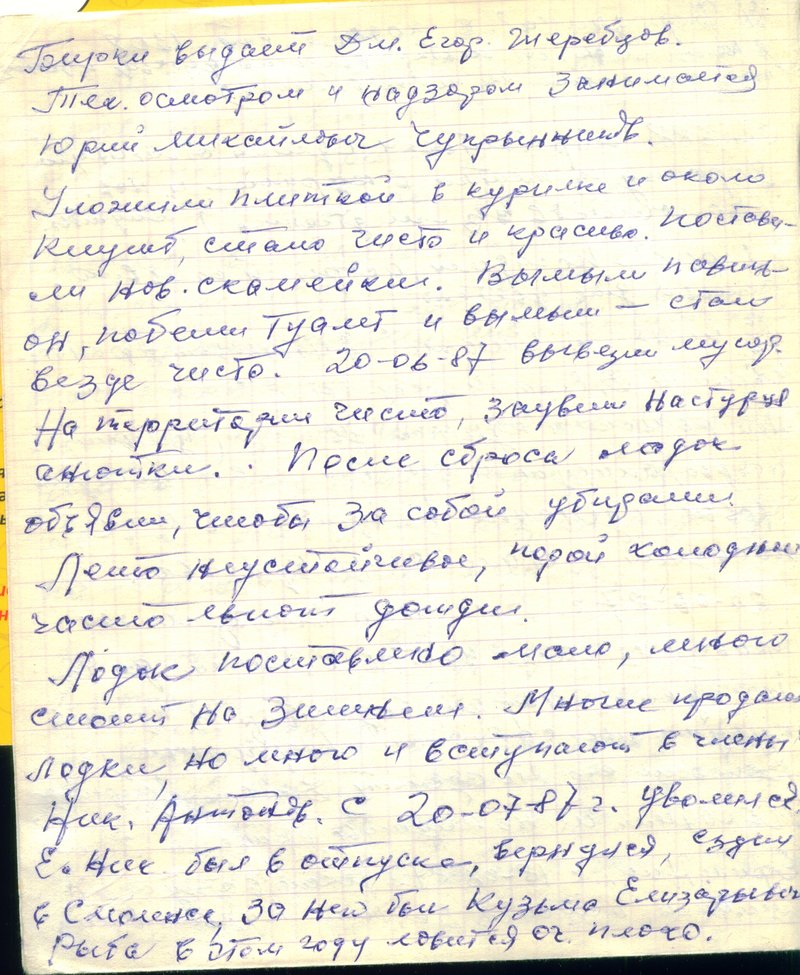 Бирки выдает Дм. Егор. Жеребцов.
Тех. осмотром и надзором занимается
Юрий Михайлович Чупрынников.
Уложили плиткой в курилке и около
кнушт, стало чисто и красиво. Постави-
ли нов. скамейки. Вымыли павиль-
он, побелили туалет и вымыли – стало
везде чисто. 20-06-87 вывезли мусор.
На территории чисто, зацвели настурция
анютки. После сброса лодок
объявили, чтобы за собой убирали.
Лето неустойчивое, порой холодные
часто льют дожди.
Лодок поставлено мало, много
стоит на зимнем. Многие продали
лодки, но много и вступают в члены
Ник. Антонов. с 20-07-87 г. уволился,
Е. Ник. был в отпуске, вернулся, ездил
в Смоленск, за него был Кузьма Елизарыч
Рыба в этом году ловится оч. плохо.